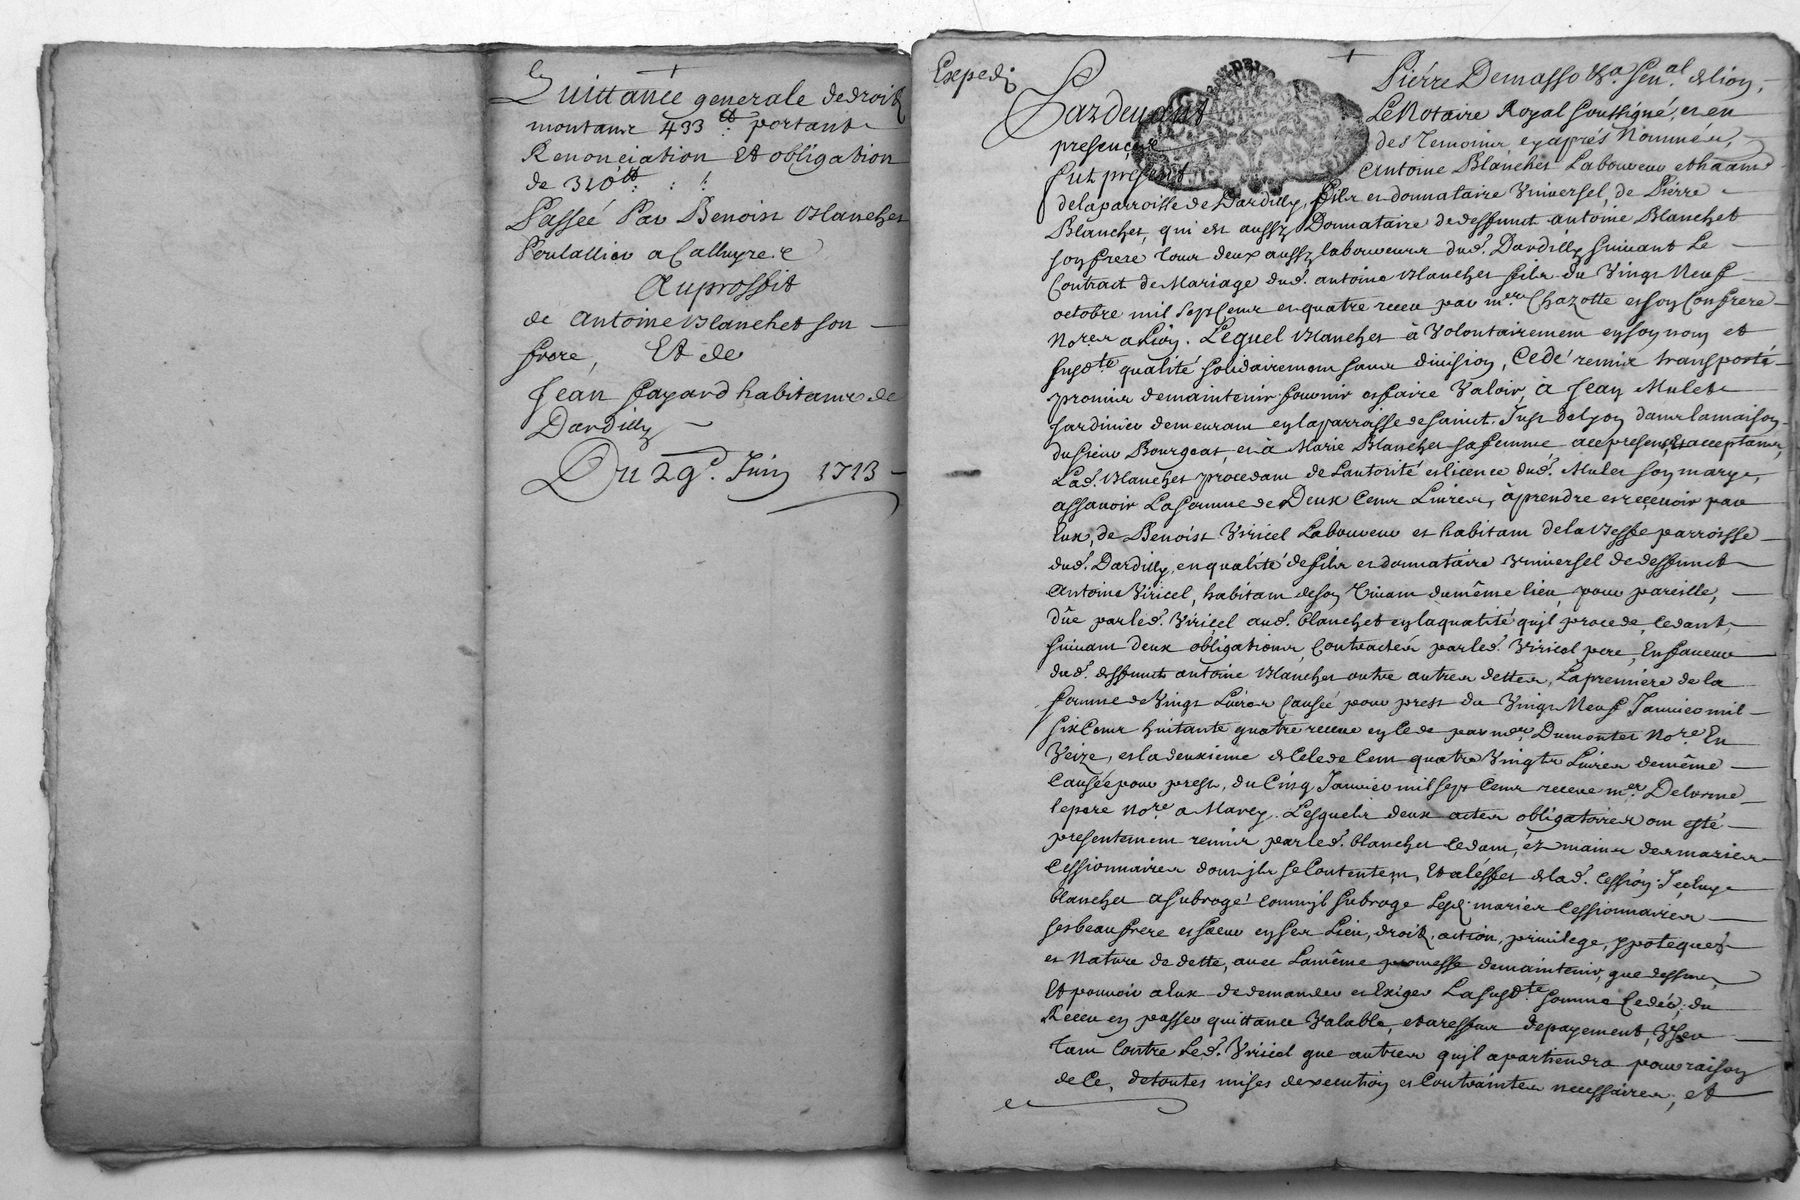 +
Quittance generale de droitz
montant 433 ₶. portant
Renonciation Et obligation
de 310 ₶ : :
Passeé Par Benoist Blanchet
Poulallier a Calluyre
Auproffit
de Antoine Blanchet son
frere, Et de
Jean Fayard habitant de
Dardilly
Du 29e. Juin 1713
+
Expedié
Pierre Demasso &a Senal. de lion,
Pardevant Le Notaire Royal soussigné, et en
presence des Temoins, cy aprés Nommés,
fut present Antoine Blanchet Laboureur
de la parroisse de Dardilly, fils et donnataire Vniversel, de Pierre
Blanchet, qui est aussy Donnataire de deffunct antoine Blanchet
son frere tous deux aussy laboureurs dud. Dardilly suivant Le
Contract de Mariage dud. antoine Blanchet fils du Vingt Neuf
octobre mil sept cent et quatre receu par mere Chazotte et son Confrere
Nores a Lion. Lequel Blanchet à Volontairement en son nom et
susdte qualité solidairement sans division, Cedé remis transporté
promis de maintenir fournir et faire Valoir, à Jean Mulet
jardinier demeurant en la parroisse de sainct Just de lyon dans la maison
du sieur Bourgeat, et à Marie Blanchet sa femme, acy presents, et acceptants,
Lad. Blanchet procedant de Lautorité et licence dud. Mulet son mary,
assavoir La somme de Deux Cent Livres, à prendre et reçevoir par
Eux, de Benoist Viricel Laboureur et habitant de la Besse parroisse
dud. Dardilly, en qualité de fils et donnataire Vniversel de deffunct
Antoine Viricel, habitant de son Vivant du même lieu, pour pareille,
dûe par led. Viricel aud. blanchet en la qualité qu'jl procede, Cedant,
suivant deux obligations, Contractées par led. Viricel pere, En faveur
dud. deffunct antoine Blanchet outre autres dettes, La premiere de la
somme de Vingt Livres Causée pour prest du Vingt Neuf Janvier mil
six Cent huitante quatre receue par mere Dumontet Nore En
Veize, et la deuxieme de Cent quatre Vingts Livres de même
Causée pour prest, du Cinq Janvier mil sept Cent receue mer. Delorme
le pere Nore a Marcy. Lesquels deux actes obligatoires ont esté
presentement remis par led. blanchet Cedant, éz mains des mariés
Cessionnaires dont jls se Contentent, Et a l'effet de lad. Cession Iceluy
blanchet a subrogé comme jl subroge Lesd. mariés Cessionnaires
ses beau frere et soeur en ses Lieu, droitz, action, privilege, ypoteques
et Nature de dette, avec La même promesse de maintenir, que dessus,
Et pouvoir a Eux de demander et Exiger La susdte somme Cedée, du
Receu en passer quittance Valable, et a reffus de payement, Vser
tant Contre Led. Viricel que autres qu'jl apartiendra pour raison
de Ce, de toutes mises dexecution et Contraintes necessaires, et